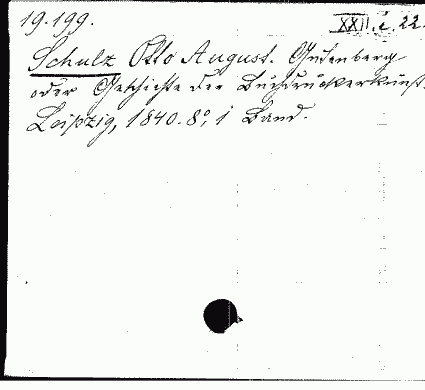 19.199.
XXII. i. 22.
Schulz Otto August. Gutenberg
oder Geschichte der Buchdruckerkunst.
Leipzig, 1840. 8°, 1 Band.